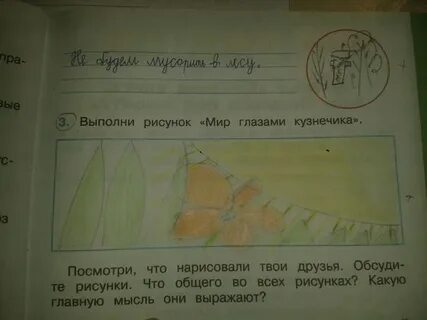 Не будем мусорить в лесу.
пра-
вые
3. Выполни рисунок «Мир глазами кузнечика».
ус-
Посмотри, что нарисовали твои друзья. Обсуди-
те рисунки. Что общего во всех рисунках? Какую
главную мысль они выражают?